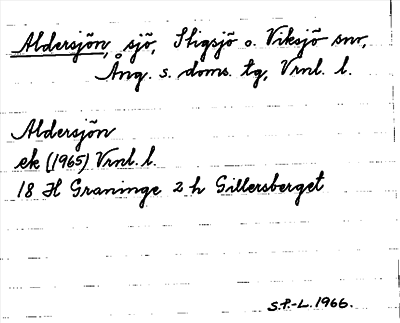 Aldersjön, sjö, Stigsjö o. Viksjö snr,
Ång. s. doms. tg, Vrnl. l.
Aldersjön
ek (1965) Vrnl. l.
18 H Graninge 2 h Gillersberget
S.P.-L. 1966.